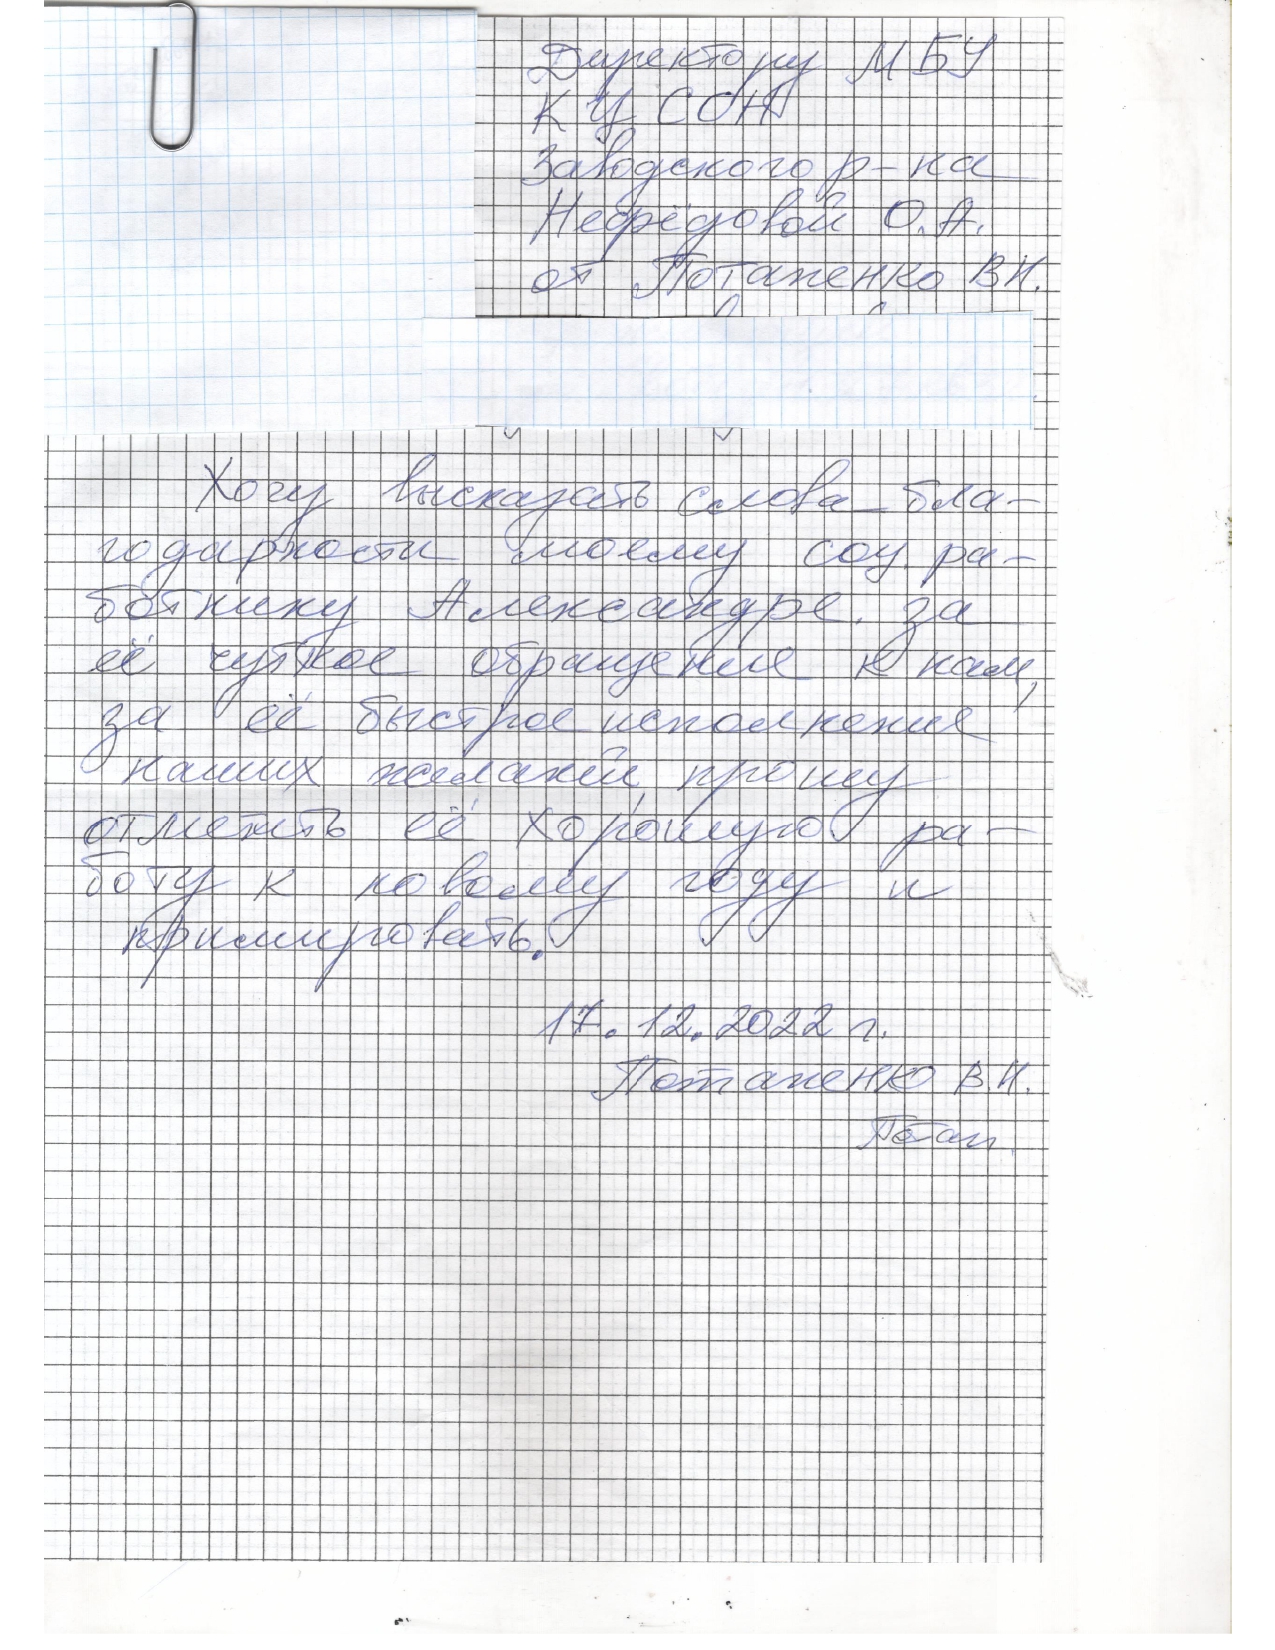 Директору МБУ
КЦСОН
Заводского р-на
Нефёдовой О.А.
от Потапенко В.И.
Хочу высказать слова бла-
годарности моему соц. ра-
ботнику Александре за
её чуткое обращение к нам,
за её быстрое исполнение
наших желаний, прошу
отметить её хорошую ра-
боту к новому году и
примировать.
17.12.2022 г.
Потапенко В.И.
Потап